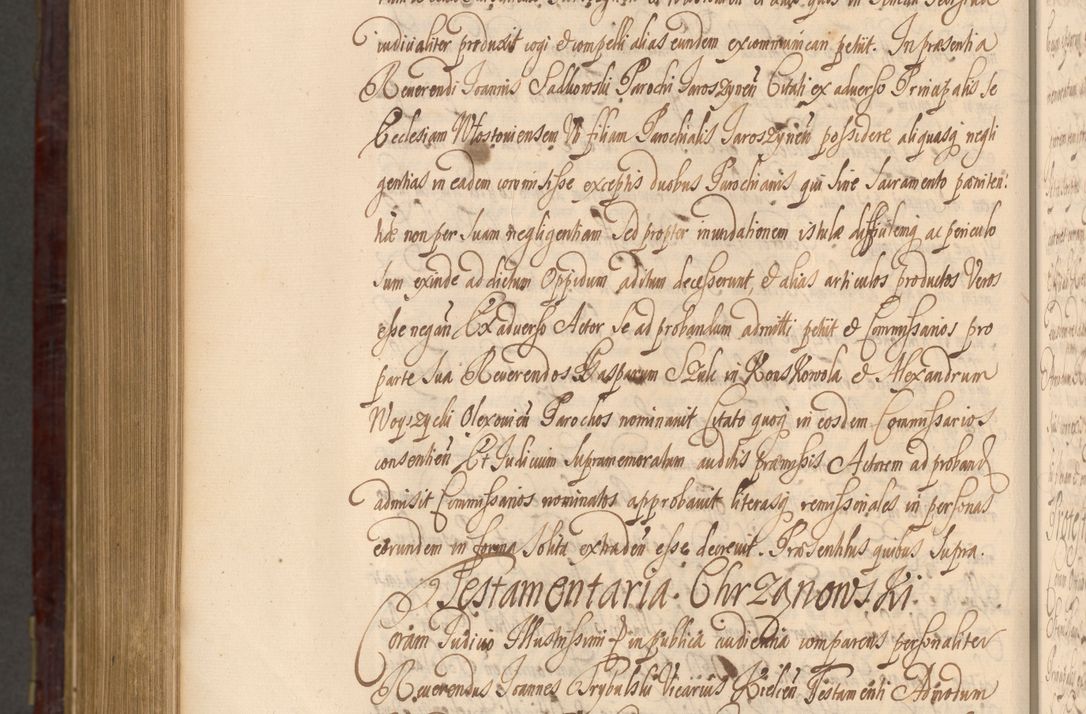 iudicialiter produxit cogi et compelli alias eundem excommunicari petiit. In præsentia
Reverendi Joannis Sadkowski Parochi Jaroszynen̄ Citati ex adverso Principalis se
Ecclesiam Wostoviensem Vti filiam Parochialis Jaroszynen̄ possidere aliquasq̢ negli
gentias in eadem commisisse exceptis duobus Parochianis qui sine Sacramento pœniten:
tiæ non per suam negligentiam sed propter inundationem istulæ difficilemq̢ ac periculo
sum exinde ad dictum Oppidum aditum decesserunt, et alias articulos productos Veros
esse negan̄ Ex adverso Actor se ad probandum admitti petiit et Commissarios pro
parte sua Reverendos Gasparum Szulc in Konskowola et Alexandrum
Woyszycki Olexovien̄ Parochos nominavit Citato quoq̢ in eosdem Commissarios
consentien̄ Et Judicium supramemoratum auditis præmissis Actorem ad proband̄
admisit Commissarios nominatos approbavit literasq̢ remissionales in personas
eorundem in forma solita extraden̄ esse decrevit. Præsentibus quibus supra.
Testamentaria Chrzanowski.
Coram Judicio Illustrissimi in publica audientia comparens personaliter
Reverendus Joannes Grybalski Vicarius Kielcen̄ Testamenti Admodum